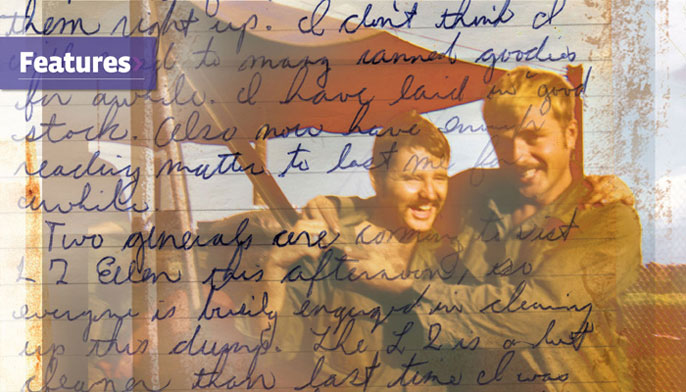 them right up. I don't think I
Features
to many canned goodies
for awhile. I have laid in good
stock. Also now have enough
reading matter to last me for
awhile.
Two generals are coming to visit
LZ Ellen this afternoon, so
everyone is busily engaged in cleaning
up this dump. The LZ is a lot
cleaner than last time I was